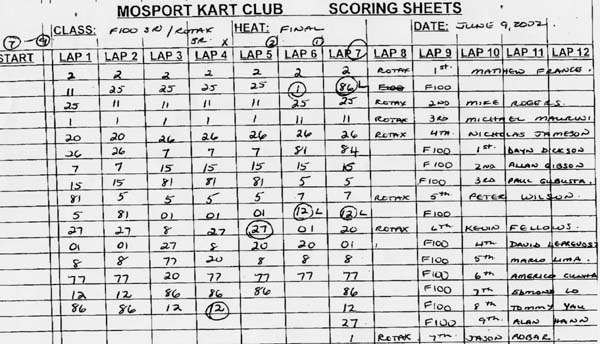 MOSPORT KART CLUB SCORING SHEETS
CLASS: F100 SR / ROTAX SR. HEAT: FINAL DATE: JUNE 9, 2002
7 9 X 2 1
START LAP 1 LAP 2 LAP 3 LAP 4 LAP 5 LAP 6 LAP 7 LAP 8 LAP 9 LAP 10 LAP 11 LAP 12
2 2 2 2 2 2 2 ROTAX 1st. MATTHEW FRANCE.
11 25 25 25 25 1 86 L F100 F100
25 11 11 11 11 25 25 ROTAX 2ND MIKE ROGERS.
1 1 1 1 1 11 11 ROTAX 3RD MICHAEL
20 20 26 26 26 26 26 ROTAX 4TH. NICHOLAS JAMESON
26 26 7 7 7 81 84 F100 1st. DAYN DICKSON
7 7 15 15 15 15 15 F100 2ND ALLAN GIBSON
15 15 81 81 81 5 5 F100 3RD PAUL
81 5 5 5 5 7 7 ROTAX 5th. PETER WILSON.
5 81 01 01 01 12 L 12 L F100
27 27 8 27 27 01 20 ROTAX 6th KEVIN FELLOWS.
01 01 27 8 20 20 01 F100 4th DAVID
8 8 77 20 8 8 8 F100 5th MARCO LIMA.
77 77 20 77 77 77 77 F100 6th AMERICO
12 12 86 86 86 86 F100 7th EDMOND LO
86 86 12 12 12 F100 8th TOMMY YAU
27 F100 9th. ALAN HANN
1 ROTAX. 7th JASON ROBAR.